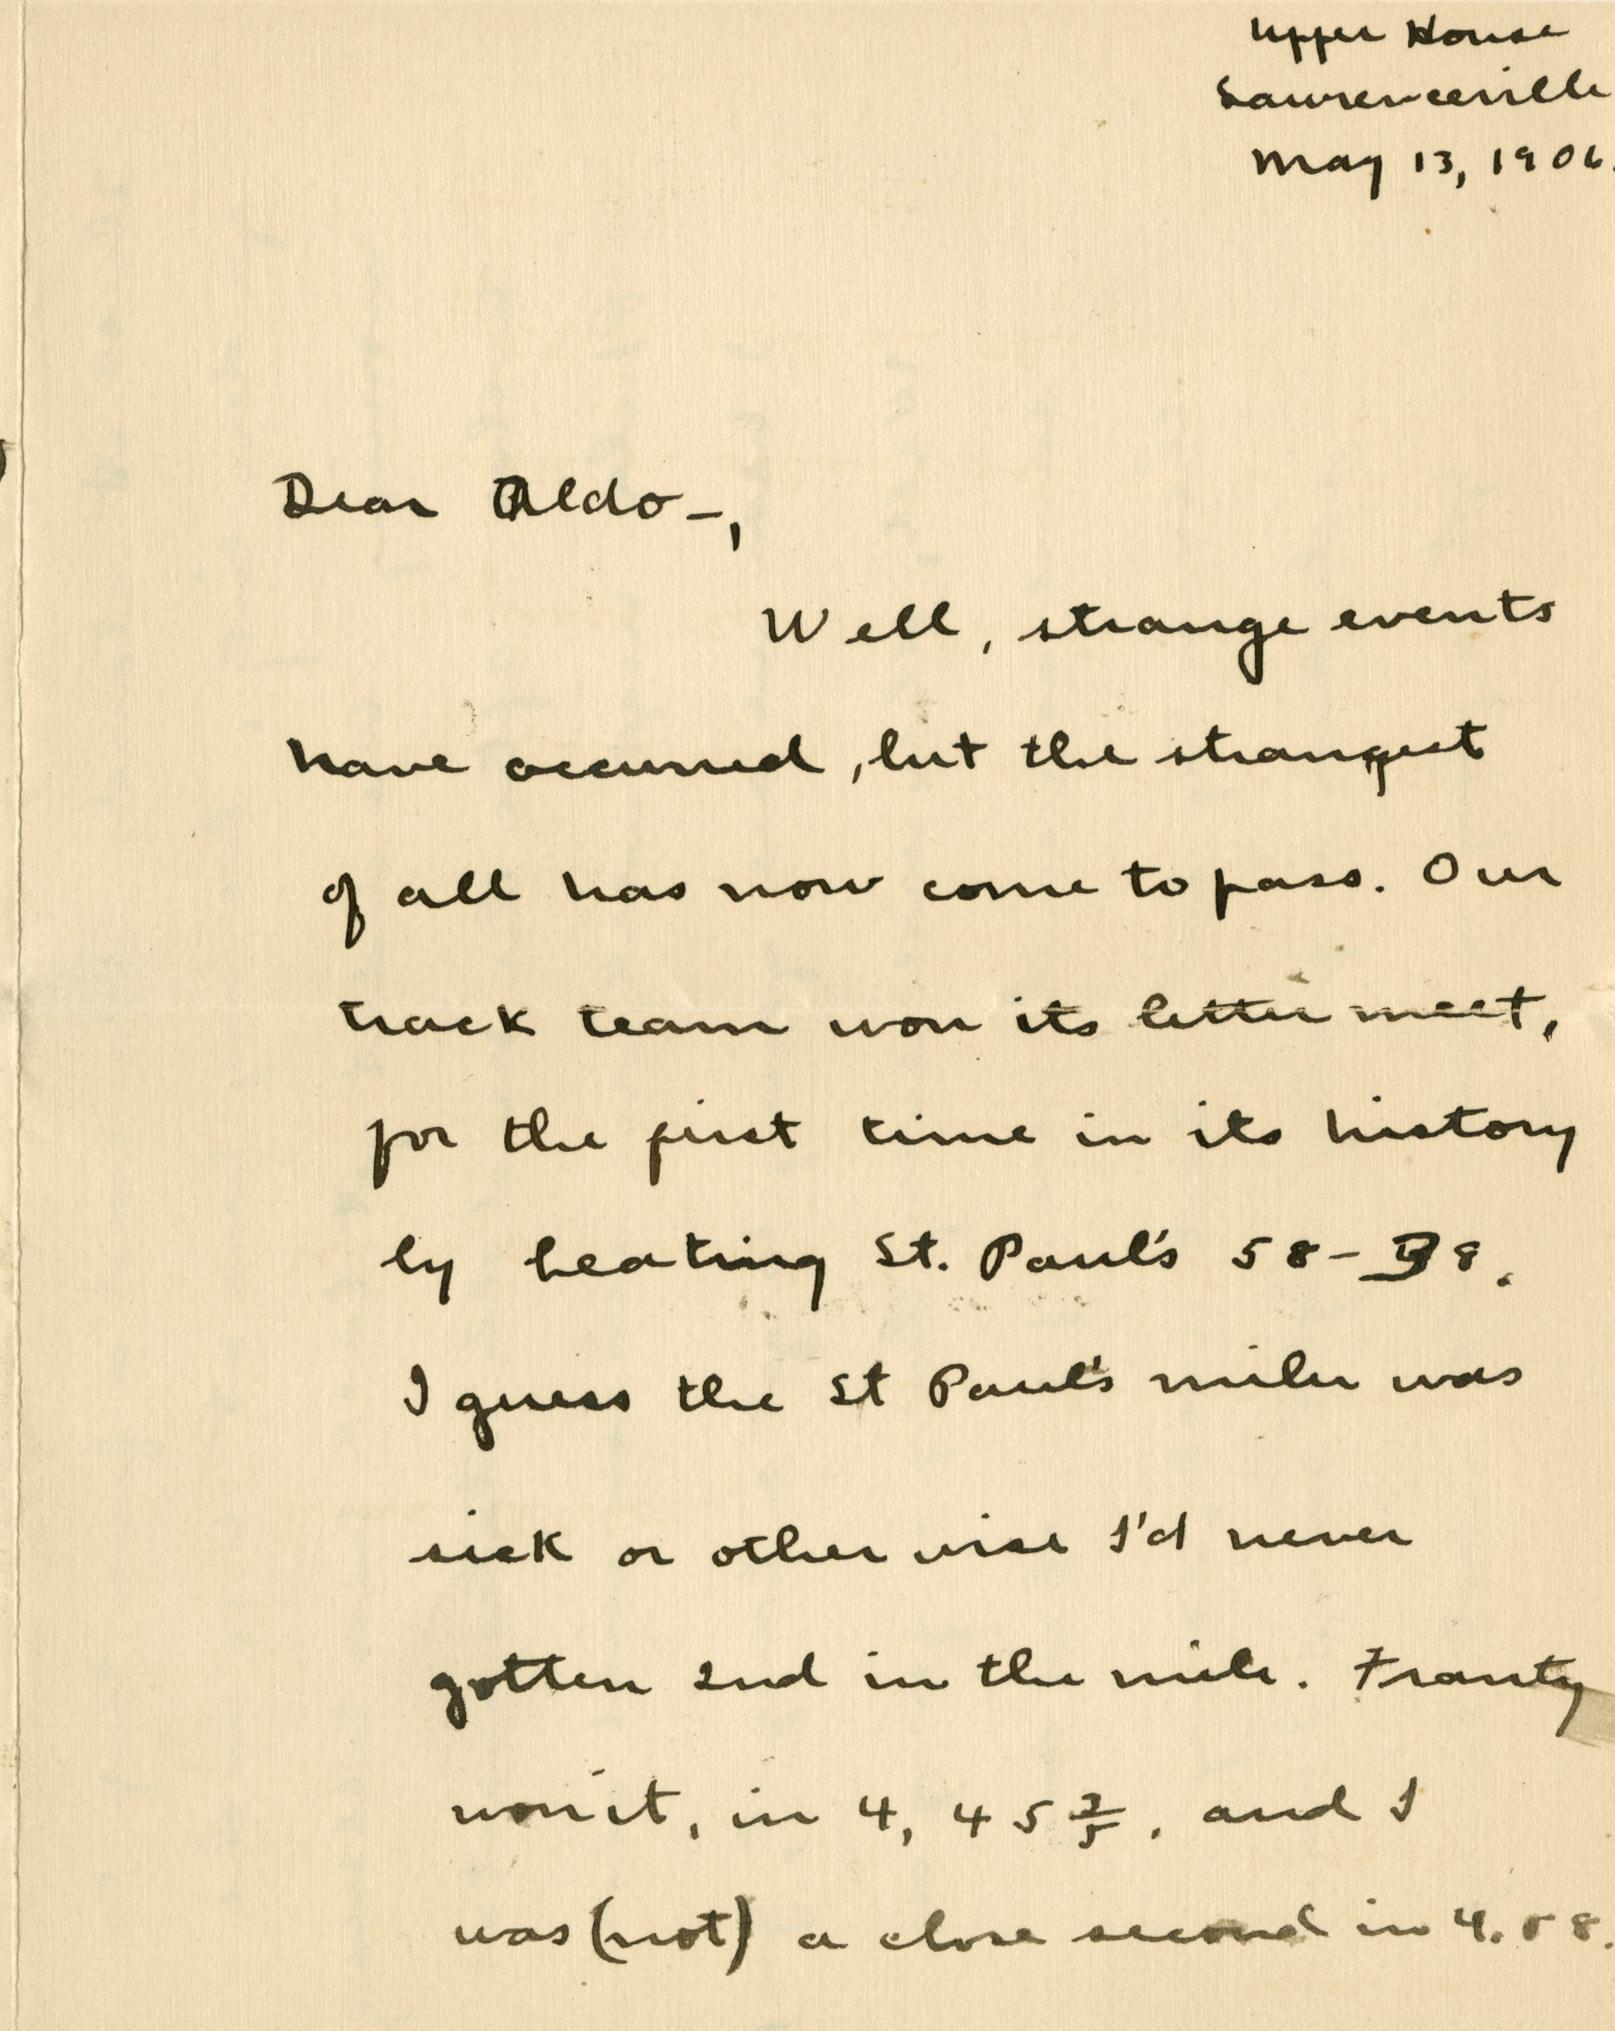 Upper House
Lawrenceville
May 13, 1906.
Dear Aldo-,
Well, strange events
have occurred, but the strangest
of all has now come to pass. Our
track team won its letter meet,
for the first time in its history
by beating St. Paul's 58-38.
I guess the St Paul's miler was
sick or other wise I'd never
gotten 2nd in the mile. Franty
won it, in 4, 45 2/5, and I
was (not) a close second in 4.58.